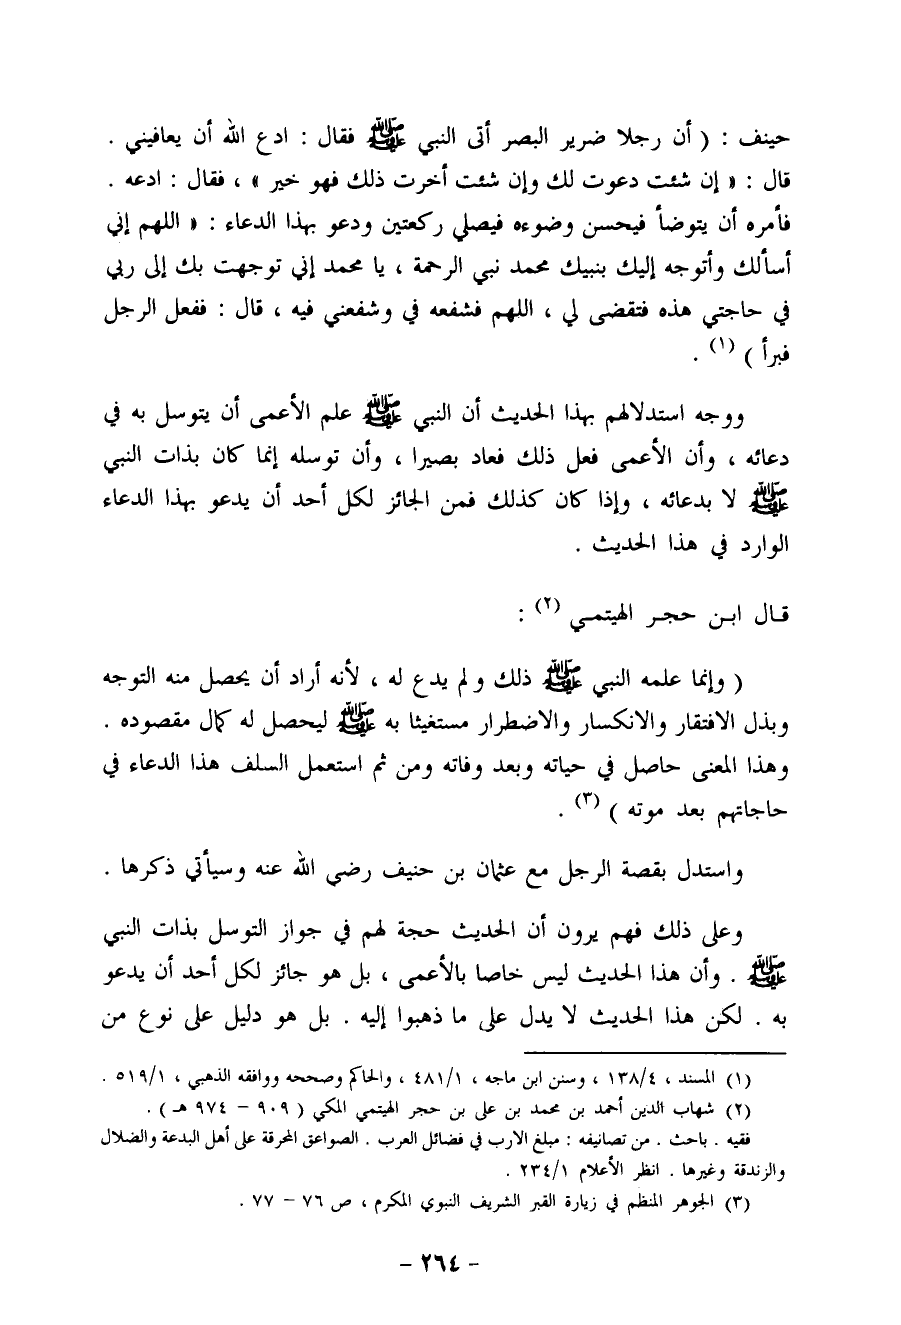 حينف : ( أن رجلا ضرير البصر أتى النبي ﷺ فقال : ادع الله أن يعافيني .
قال : « إن شئت دعوت لك وإن شئت أخرت ذلك فهو خير » ، فقال : ادعه .
فأمره أن يتوضأ فيحسن وضوءه فيصلي ركعتين ودعو بهذا الدعاء : « اللهم إني
أسألك وأتوجه إليك بنبيك محمد نبي الرحمة ، يا محمد إني توجهت بك إلى ربي
في حاجتي هذه فتقضى لي ، اللهم فشفعه في وشفعني فيه ، قال : ففعل الرجل
فبرأ ) (١) .
ووجه استدلالهم بهذا الحديث أن النبي ﷺ علم الأعمى أن يتوسل به في
دعائه ، وأن الأعمى فعل ذلك فعاد بصيرا ، وأن توسله إنما كان بذات النبي
ﷺ لا بدعائه ، وإذا كان كذلك فمن الجائز لكل أحد أن يدعو بهذا الدعاء
الوارد في هذا الحديث .
قال ابن حجر الهيتمي (٢) :
( وإنما علمه النبي ﷺ ذلك ولم يدع له ، لأنه أراد أن يحصل منه التوجه
وبذل الافتقار والانكسار والاضطرار مستغيثا به ﷺ ليحصل له كمال مقصوده .
وهذا المعنى حاصل في حياته وبعد وفاته ومن ثم استعمل السلف هذا الدعاء في
حاجاتهم بعد موته ) (٣) .
واستدل بقصة الرجل مع عثمان بن حنيف رضي الله عنه وسيأتي ذكرها .
وعلى ذلك فهم يرون أن الحديث حجة لهم في جواز التوسل بذات النبي
ﷺ . وأن هذا الحديث ليس خاصا بالأعمى ، بل هو جائز لكل أحد أن يدعو
به . لكن هذا الحديث لا يدل على ما ذهبوا إليه . بل هو دليل على نوع من
(١) المسند ، ١٣٨/٤ ، وسنن ابن ماجه ، ٤٨١/١ ، والحاكم وصححه ووافقه الذهبي ، ٥١٩/١ .
(٢) شهاب الدين أحمد بن محمد بن على بن حجر الهيتمي المكي ( ٩٠٩ – ٩٧٤ هـ ) .
فقيه . باحث . من تصانيفه : مبلغ الارب في فضائل العرب . الصواعق المحرقة على أهل البدعة والضلال
والزندقة وغيرها . انظر الأعلام ٢٣٤/١ .
(٣) الجوهر المنظم في زيارة القبر الشريف النبوي المكرم ، ص ٧٦ – ٧٧ .
– ٢٦٤ –